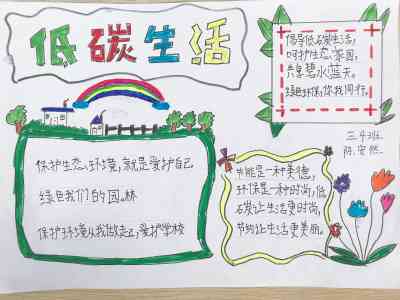 低碳生活
倡导低碳生活,
呵护生态家园,
共享碧水蓝天。
绿色环保,你我同行。
三4班
陈安然
保护生态环境,就是爱护自己
绿色我们的园林
保护环境从我做起,爱护学校
节能是一种美德,
环保是一种时尚,低
碳让生活更时尚,
节约让生活更美丽。